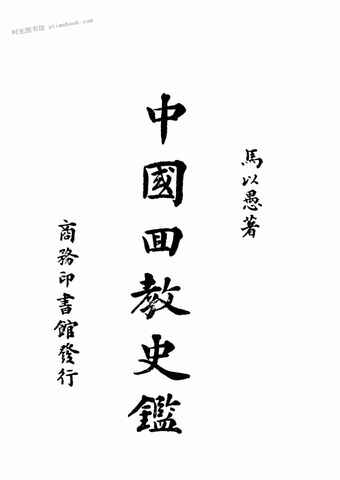 时光图书馆 etimebook.com
馬以愚著
中國回教史鑑
商務印書館發行